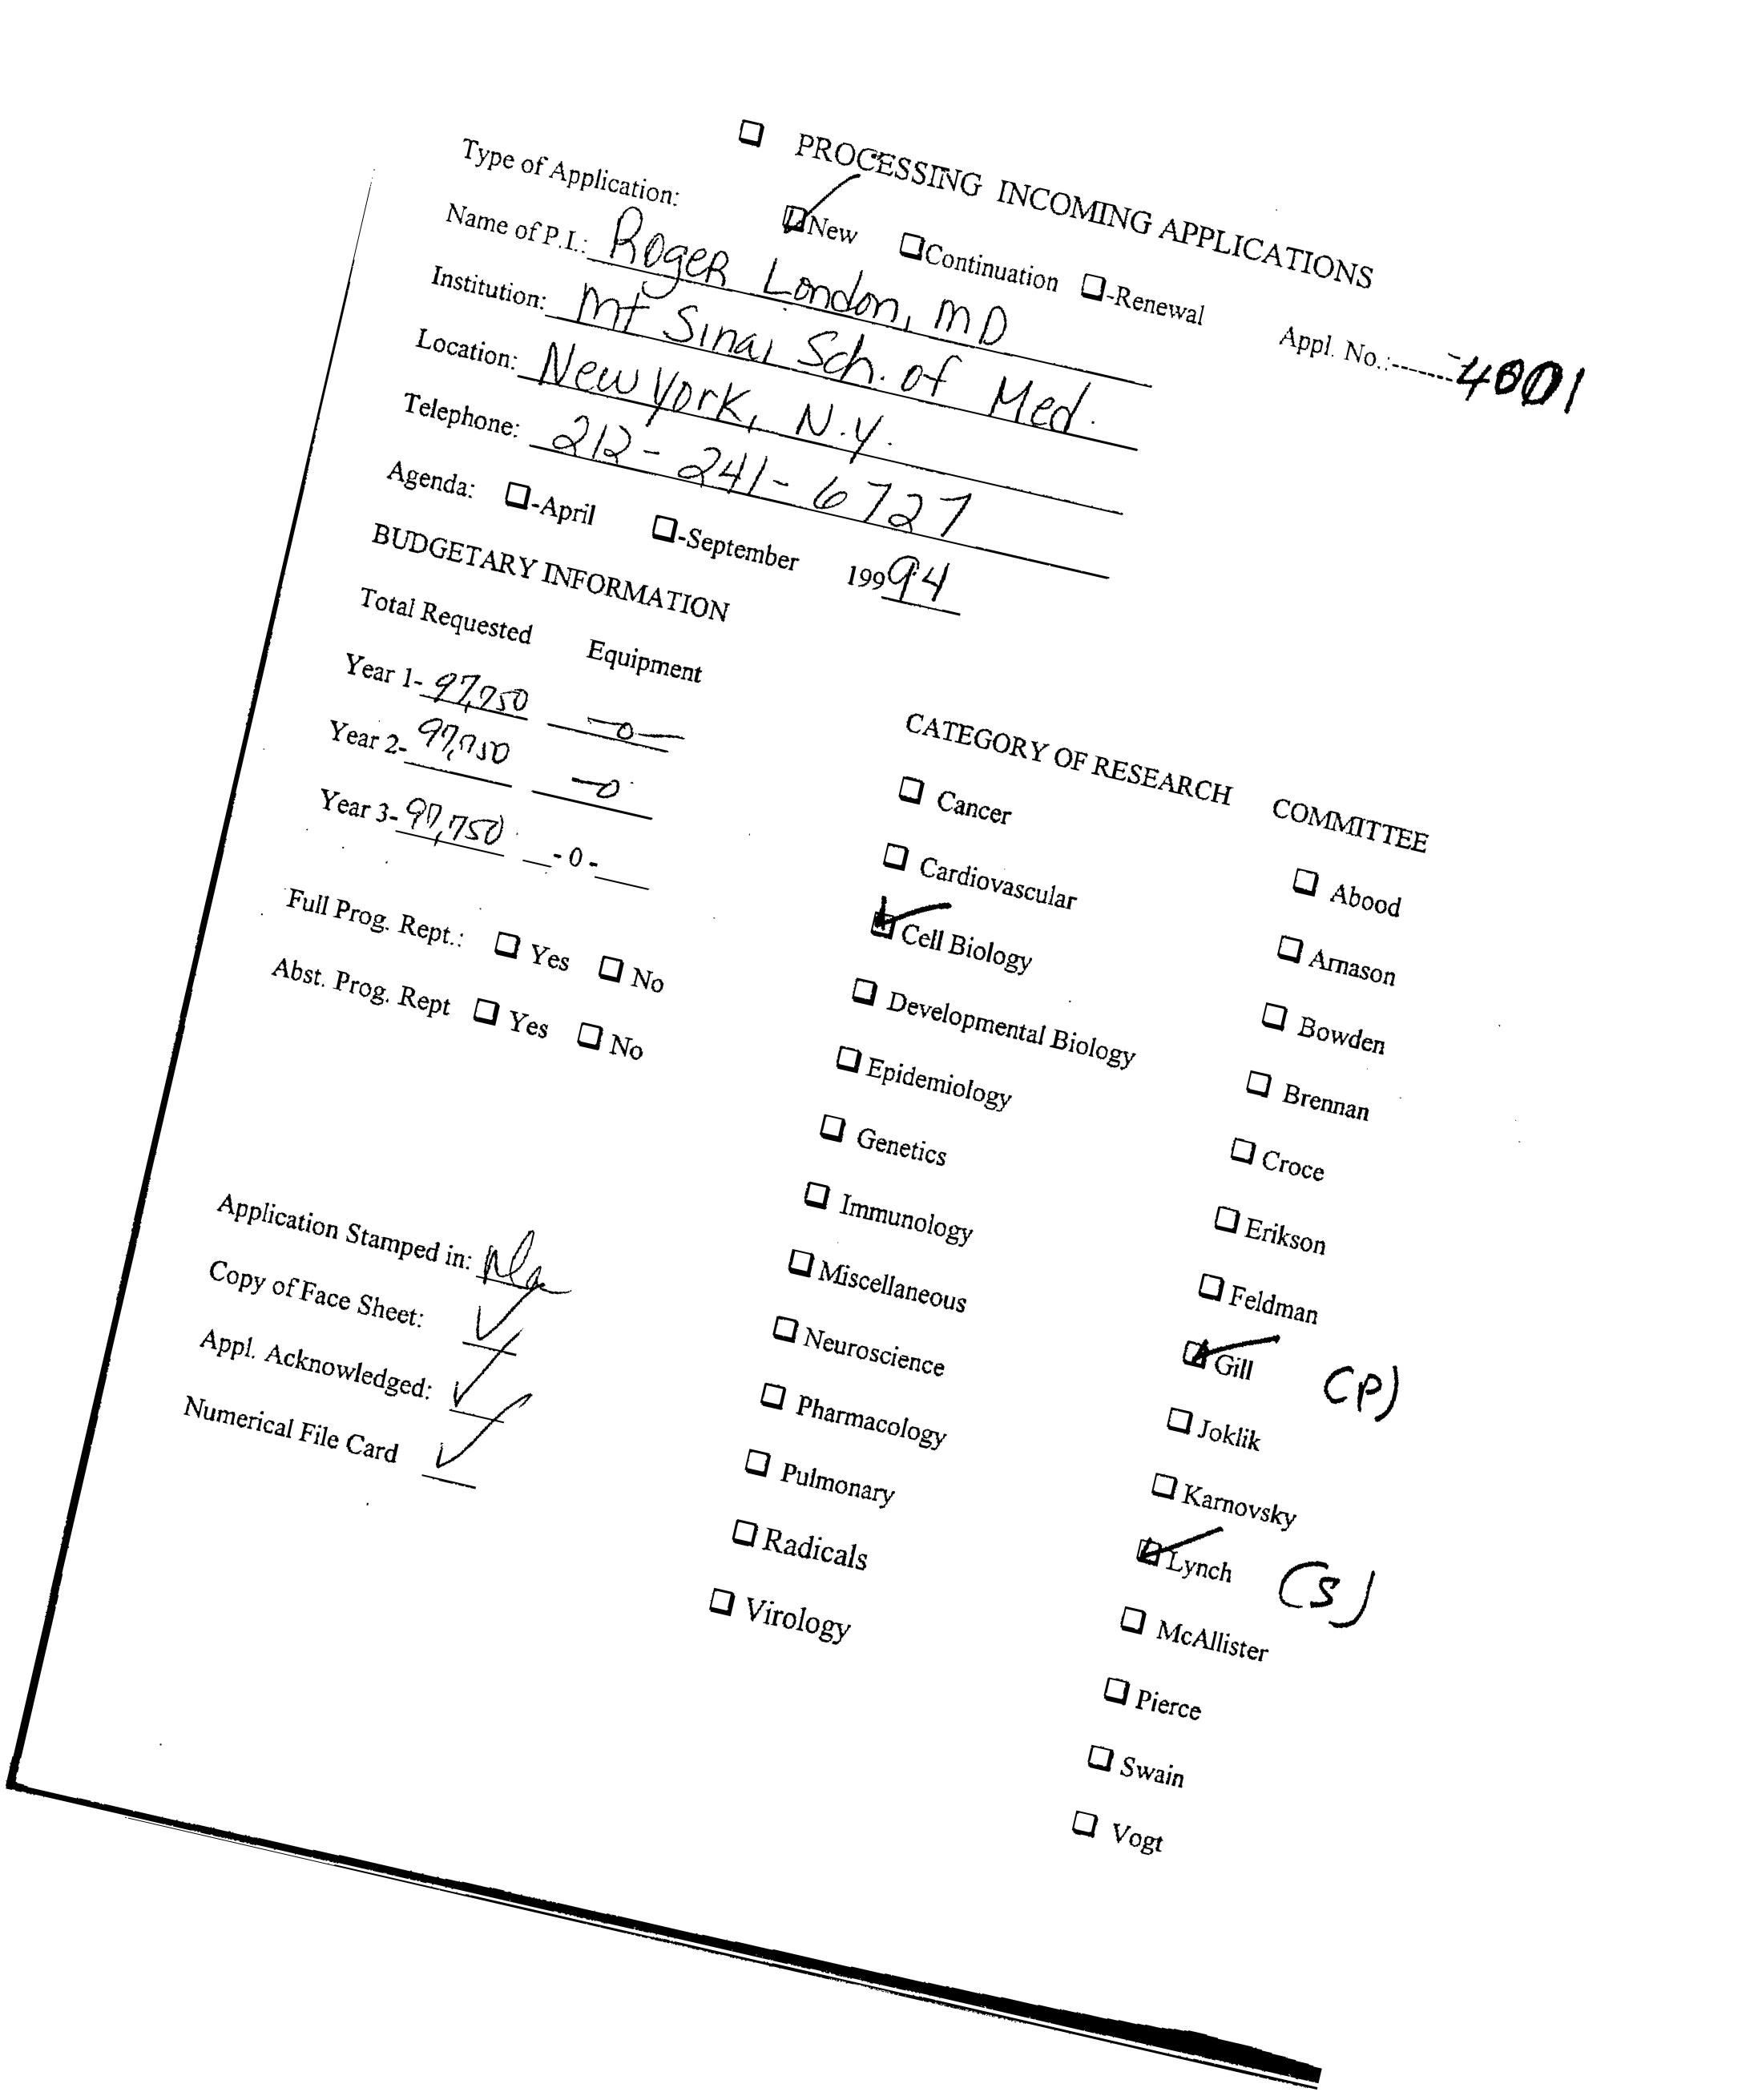 ❑ PROCESSING INCOMING APPLICATIONS
Type of Application: ❑New ❑Continuation ❑-Renewal
Appl. No.:-------4001
Name of P.I.: Roger London, MD
Institution: Mt Sinai Sch. of Med.
Location: New York, N.Y.
Telephone: 212-241-6727
Agenda: ❑-April ❑-September 199 94
BUDGETARY INFORMATION
Total Requested Equipment
Year 1- 97,750 -0-
Year 2- 97,750 -0
Year 3- 97,750 -0-
Full Prog. Rept.: ❑ Yes ❑ No
Abst. Prog. Rept ❑ Yes ❑ No
Application Stamped in:
Copy of Face Sheet: ✓
Appl. Acknowledged: ✓
Numerical File Card ✓
CATEGORY OF RESEARCH
❑ Cancer
❑ Cardiovascular
❑ Cell Biology
❑ Developmental Biology
❑ Epidemiology
❑ Genetics
❑ Immunology
❑ Miscellaneous
❑ Neuroscience
❑ Pharmacology
❑ Pulmonary
❑ Radicals
❑ Virology
COMMITTEE
❑ Abood
❑ Arnason
❑ Bowden
❑ Brennan
❑ Croce
❑ Erikson
❑ Feldman
❑ Gill (P)
❑ Joklik
❑ Karnovsky
❑ Lynch (S)
❑ McAllister
❑ Pierce
❑ Swain
❑ Vogt